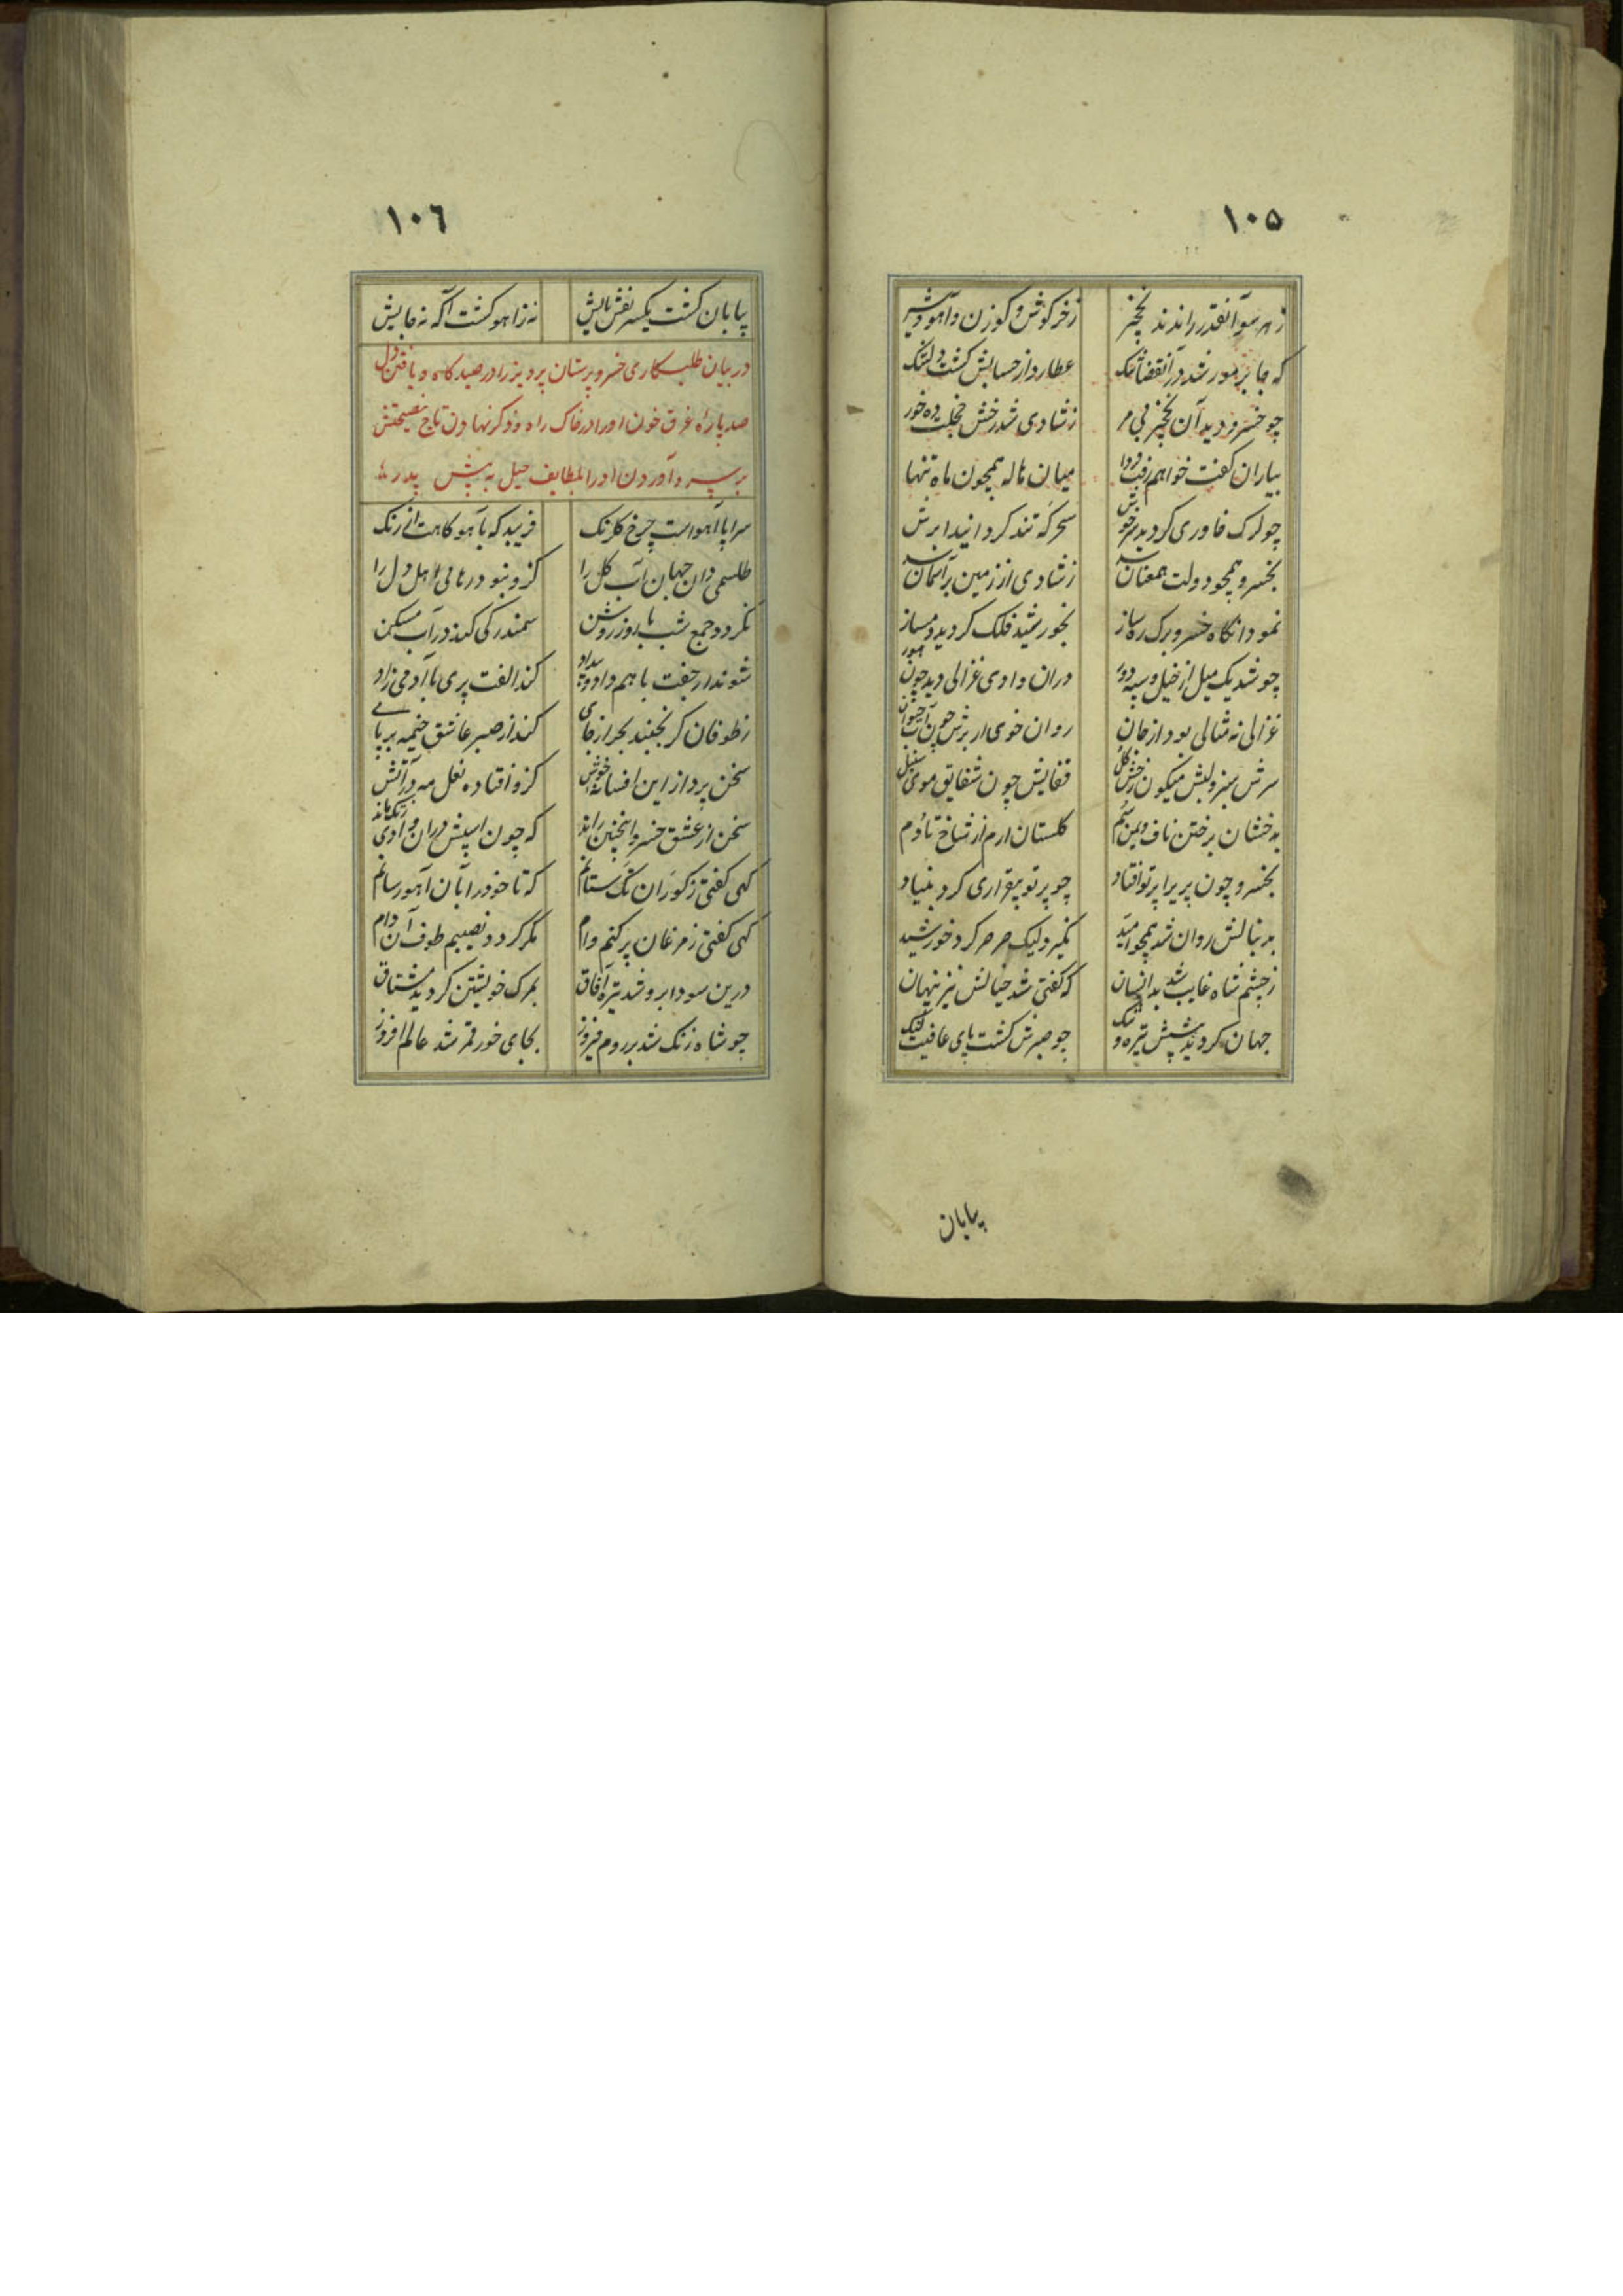 ١٠٥
ز هر سو آنقدر راندند نخچیر زخرکوش و کوزن و آهو و شیر
که جا بر مور شد در آنقضا تنک عطارد از حسابش کشت دلتنک
چو خسرو دید آن نخچیر بی مر ز شادی شد رخش خجلت ده خور
بیاران کفت خواهم رفت فردا میان هاله همچون ماه تنها
چو ترک خاوری کردید سرخوش سحر که تند کردانید ابرش
بخسرو همچو دولت همعنان شد ز شادی از زمین بر آسمان شد
نمود انکاه خسرو برک ره ساز بخورشید فلک کردید دمساز
چو شد یک میل از خیل و سپه دور دران وادی غزالی دید چون حور
غزالی نه مثالی بود از جان روان خوی از برش چون آب حیوان
سرش سبز و لبش میکون رخش کل قفایش چون شقایق موی سنبل
بدخشان بر ختن ناف و یمن سم کلستان ارم از شاخ تا دم
بخسرو چون پریرا پرتو افتاد چو پرتو بیقراری کرد بنیاد
بدنبالش روان شد همچو امید نکیرد لیک صرصر کرد خورشید
ز چشم شاه غایب شد بدانسان که کفتی شد خیالش نیز پنهان
جهان کردید پیشش تیره و تنک چو صبرش کشت پای عافیت لنک
بیابان
١٠٦
بیابان کشت یکسر نقش پایش نه زاهو کشت آکه نه جایش
در بیان طلبکاری خسرو پرستان پرویز را در صیدکاه و یافتن دل
صد پارهٔ غرق خون او را در خاک راه و ذکر نهادن تاج نصیحتش
بر سر و آوردن او را بلطایف حیل به پیش پدر
سراپا آهو است چرخ کلرنک فریبد که بآهو کاهت از رنک
طلسمی دان جهان آب کل را کزو نبود رهائی اهل دل را
نکردد جمع شب با روز روشن سمندر کی کند در آب مسکن
شوند ار جفت با هم داد و بیداد کند الفت پری با آدمی زاد
ز طوفان کر بجنبد بحر از جای کند از صبر عاشق خیمه بر پای
سخن پرداز این افسانه خوش کزو افتاده نعل مه در آتش
سخن از عشق خسرو اینچنین راند که چون اسپش دران وادی ز تک ماند
کهی کفتی ز کوران تک ستانم که تا خود را بآن آهو رسانم
کهی کفتی ز مرغان پر کنم وام مکر کردد نصیبم طوف آن دام
درین سودا برو شد تیره آفاق بمرک خویشتن کردید مشتاق
چو شاه زنک شد بر روم فیروز بجای خور قمر شد عالم افروز